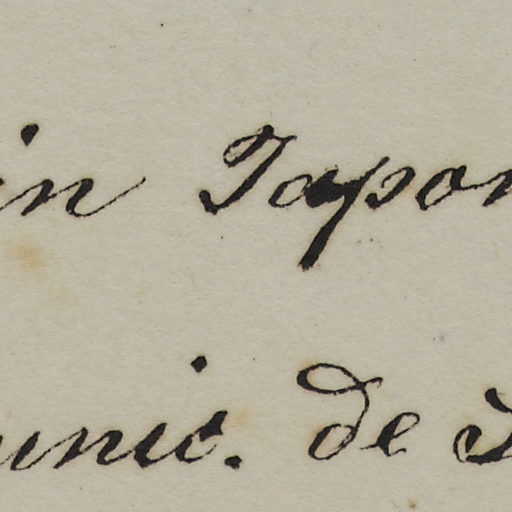 in Japon
unic. de